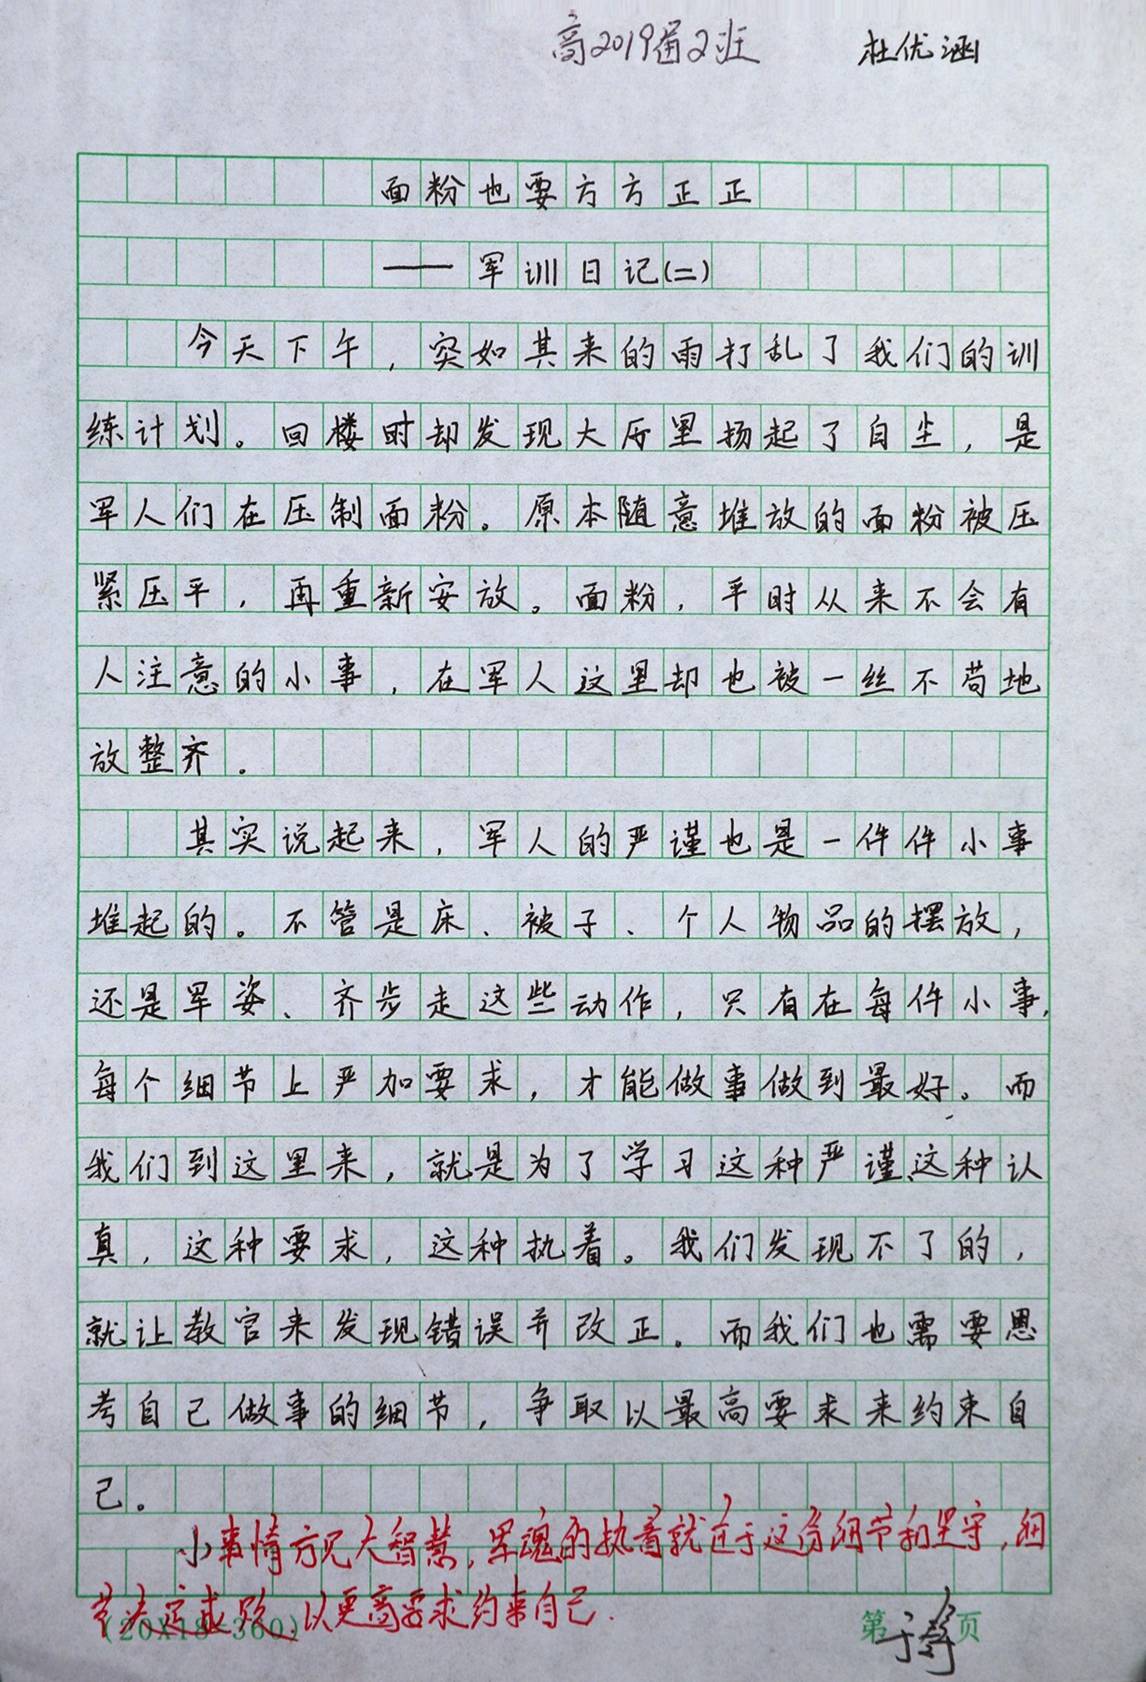 高2019届2班 杜优涵
面粉也要方方正正
——军训日记(二)
今天下午，突如其来的雨打乱了我们的训
练计划。回楼时却发现大厅里扬起了白尘，是
军人们在压制面粉。原本随意堆放的面粉被压
紧压平，再重新安放。面粉，平时从来不会有
人注意的小事，在军人这里却也被一丝不苟地
放整齐。
其实说起来，军人的严谨也是一件件小事
堆起的。不管是床、被子、个人物品的摆放，
还是军姿、齐步走这些动作，只有在每件小事，
每个细节上严加要求，才能做事做到最好。而
我们到这里来，就是为了学习这种严谨、这种认
真，这种要求，这种执着。我们发现不了的，
就让教官来发现错误并改正。而我们也需要思
考自己做事的细节，争取以最高要求来约束自
己。
小事情方见大智慧，军魂的执着就在于这份细节和坚守，细
节决定成败，以更高要求约束自己.
(20X18=360) 第 页